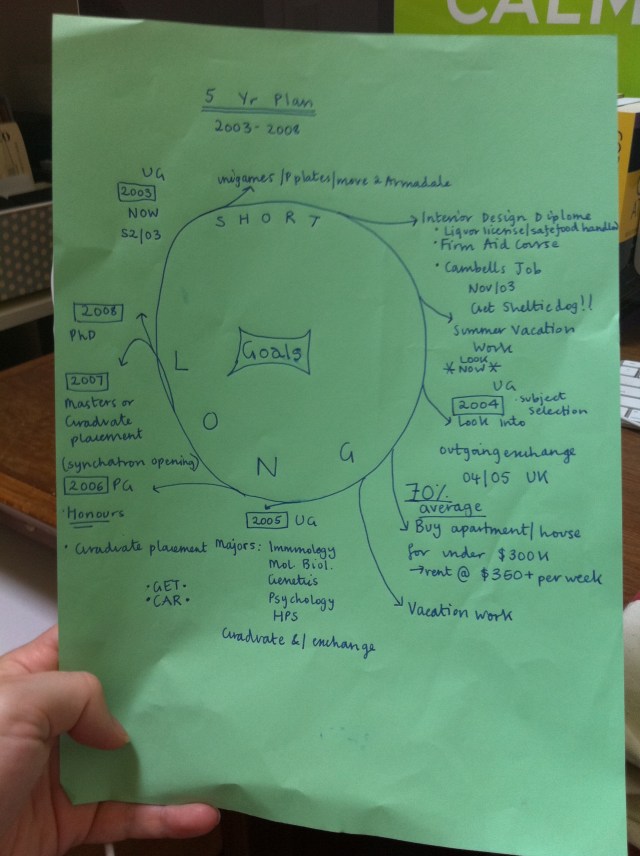 CALM
5 Yr Plan
2003-2008
UG
2003
NOW
S2/03
unigames/Pplates/move 2 Armadale
SHORT
Interior Design Diplome
• Liquor license/safefood handler
• Firm Aid Course
• Cambells Job
Nov/03
Get Sheltie dog!!
Summer Vacation
Work
LOOK
*NOW*
UG
2004 • subject
selection
Look into
outgoing exchange
04/05 UK
70%
average
Buy apartment/house
for under $300k
→rent @ $350+ per week
Vacation work
Goals
LONG
2005 UG
Majors: Immnology
Mol. Biol.
Genetics
Psychology
HPS
Graduate &/ exchange
2006 PG
• Honours
• Graduate placement
• GET •
• CAR •
2007
Masters or
Graduate
placement
(synchatron opening)
2008
PhD